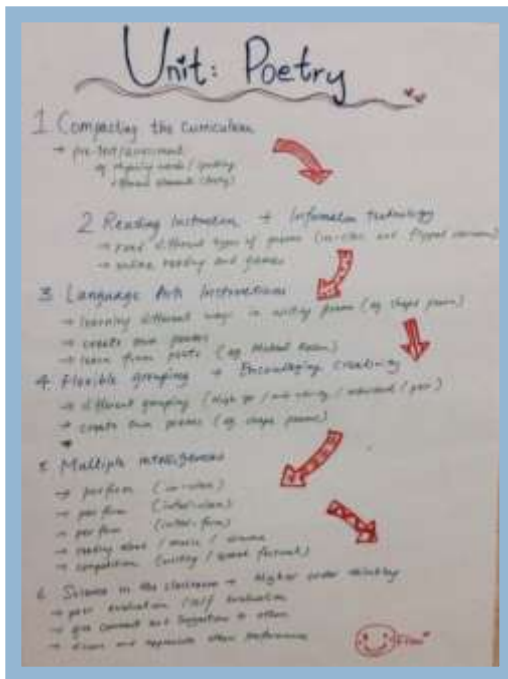 Unit: Poetry
1 Compacting the Curriculum
→ pre-test/assessment
eg rhyming words / spelling
different elements
2 Reading Instruction + Information technology
→ read different types of poems (in-class and flipped classroom)
→ online reading and games
3 Language Arts Instructions
→ learning different ways in writing poems (eg shape poem)
→ create own poems
→ learn from poets (eg Michael Rosen)
4. Flexible grouping → Encouraging Creativity
→ different grouping (high / mix / individual / pair)
→ create own poems (eg shape poems)
→
5 Multiple intelligences
→ perform (in-class)
→ perform (inter-class)
→ perform (inter-form)
→ reading aloud / music / drama
→ competition (writing / speech festival)
6 Science in the classroom → Higher order thinking
→ peer evaluation / self evaluation
→ give comment and suggestion to others
→ discuss and appreciate others performance